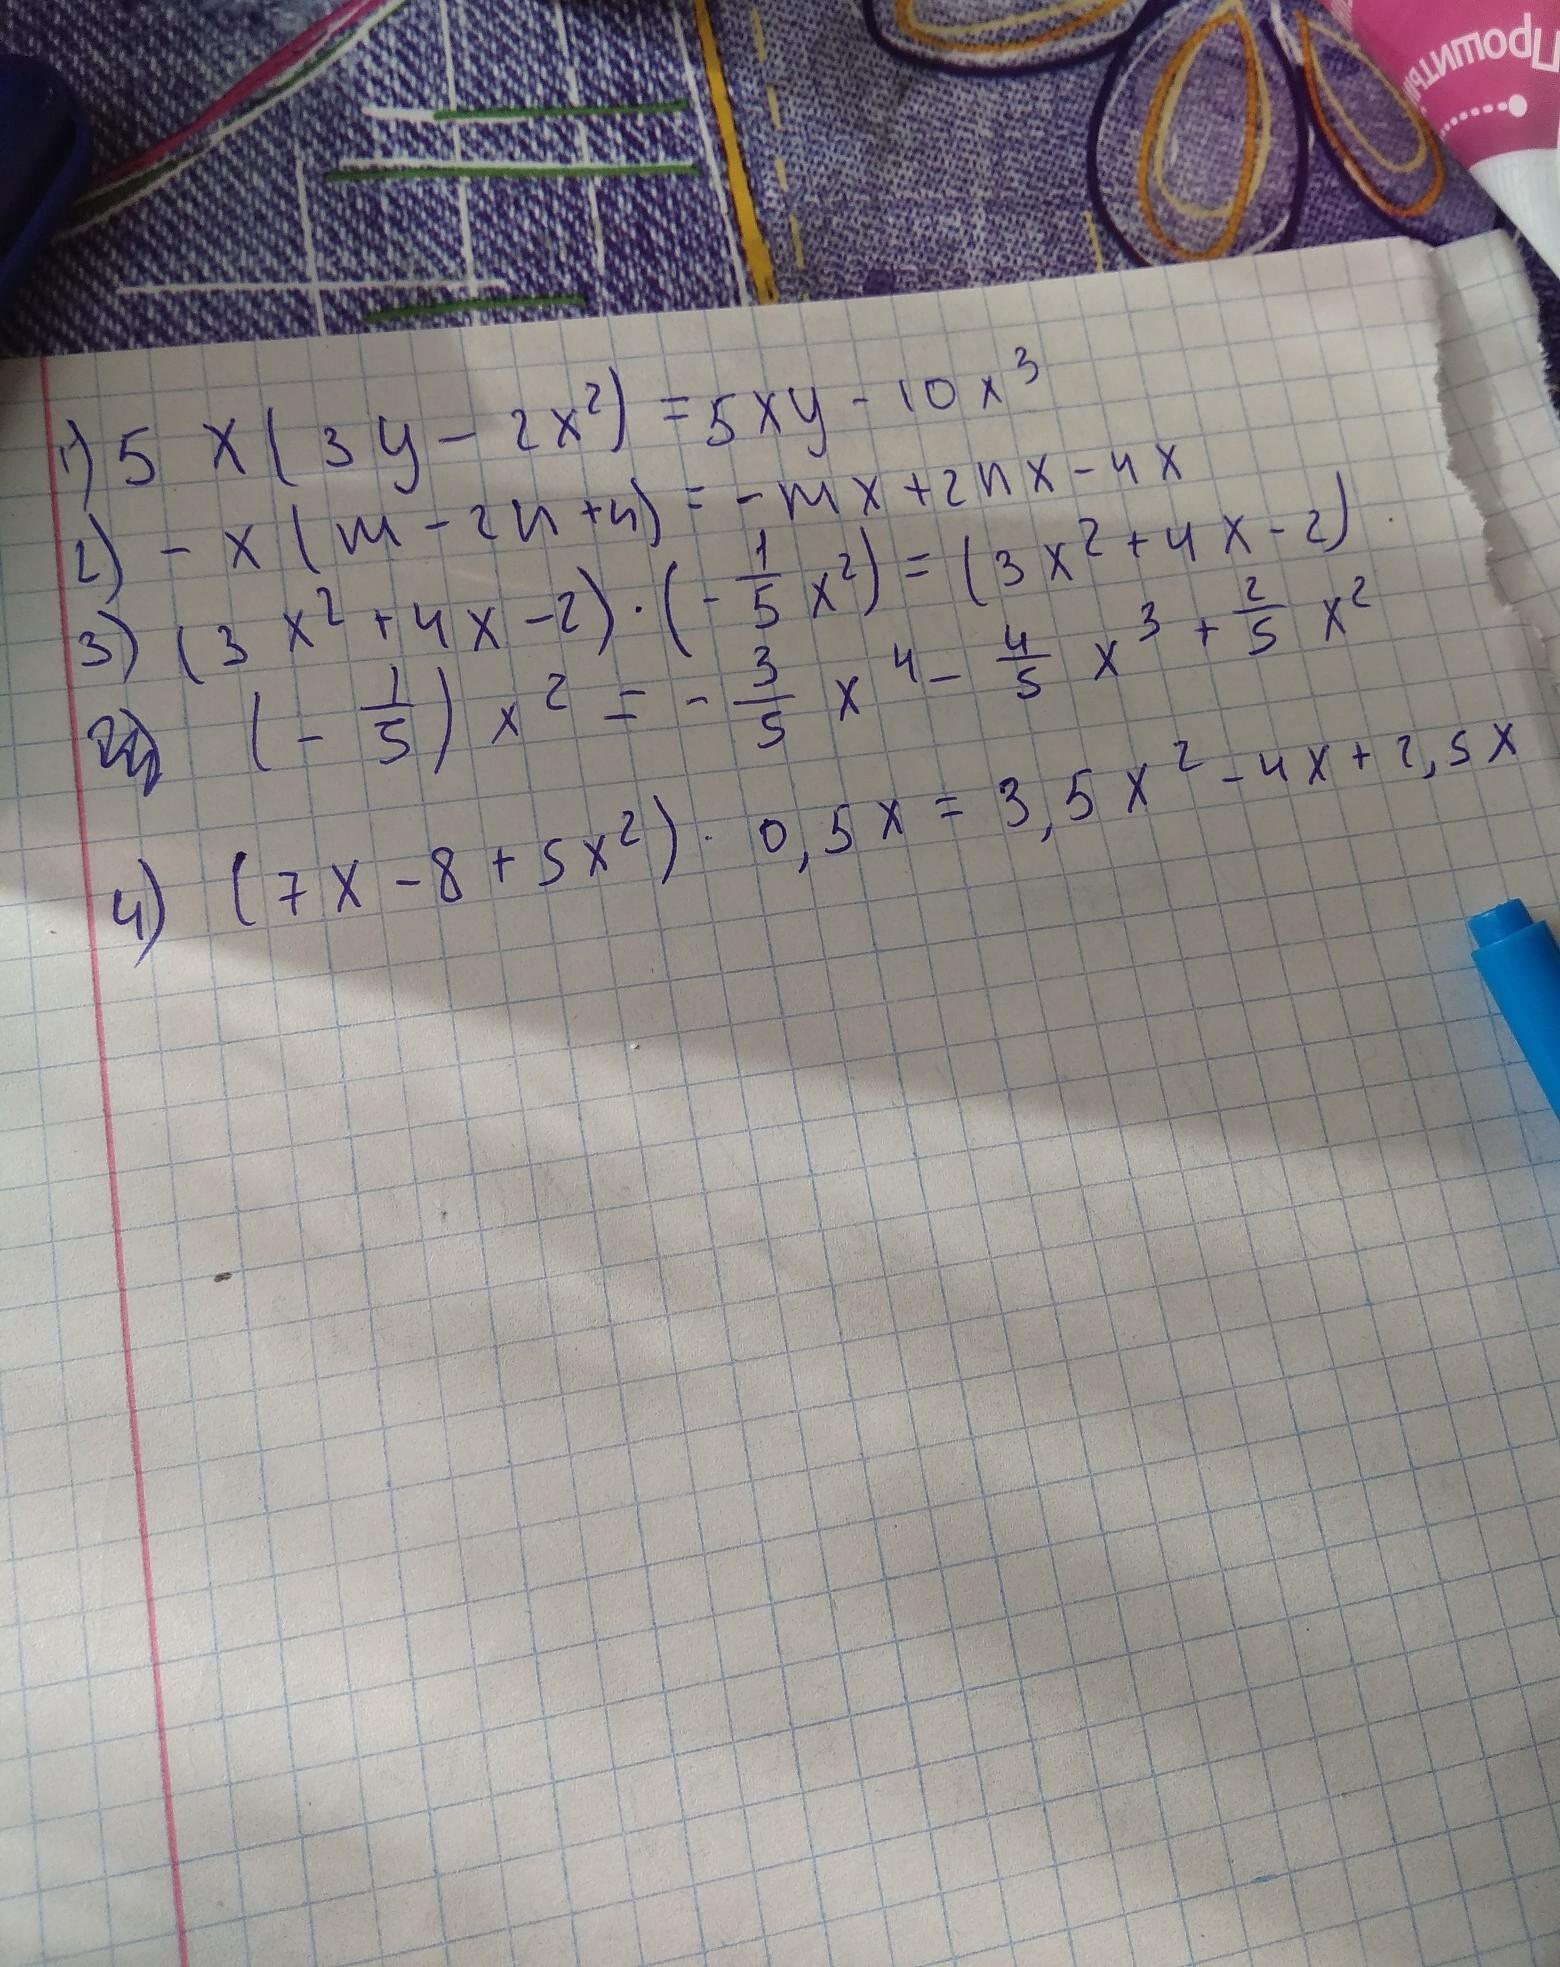 Прошиты
1) 5x(3y - 2x²) = 5xy - 10x³
2) -x(m - 2n + 4) = -mx + 2nx - 4x
3) (3x² + 4x - 2) · (-1/5 x²) = (3x² + 4x - 2) ·
(-1/5) x² = -3/5 x⁴ - 4/5 x³ + 2/5 x²
4) (7x - 8 + 5x²) · 0,5x = 3,5x² - 4x + 2,5x